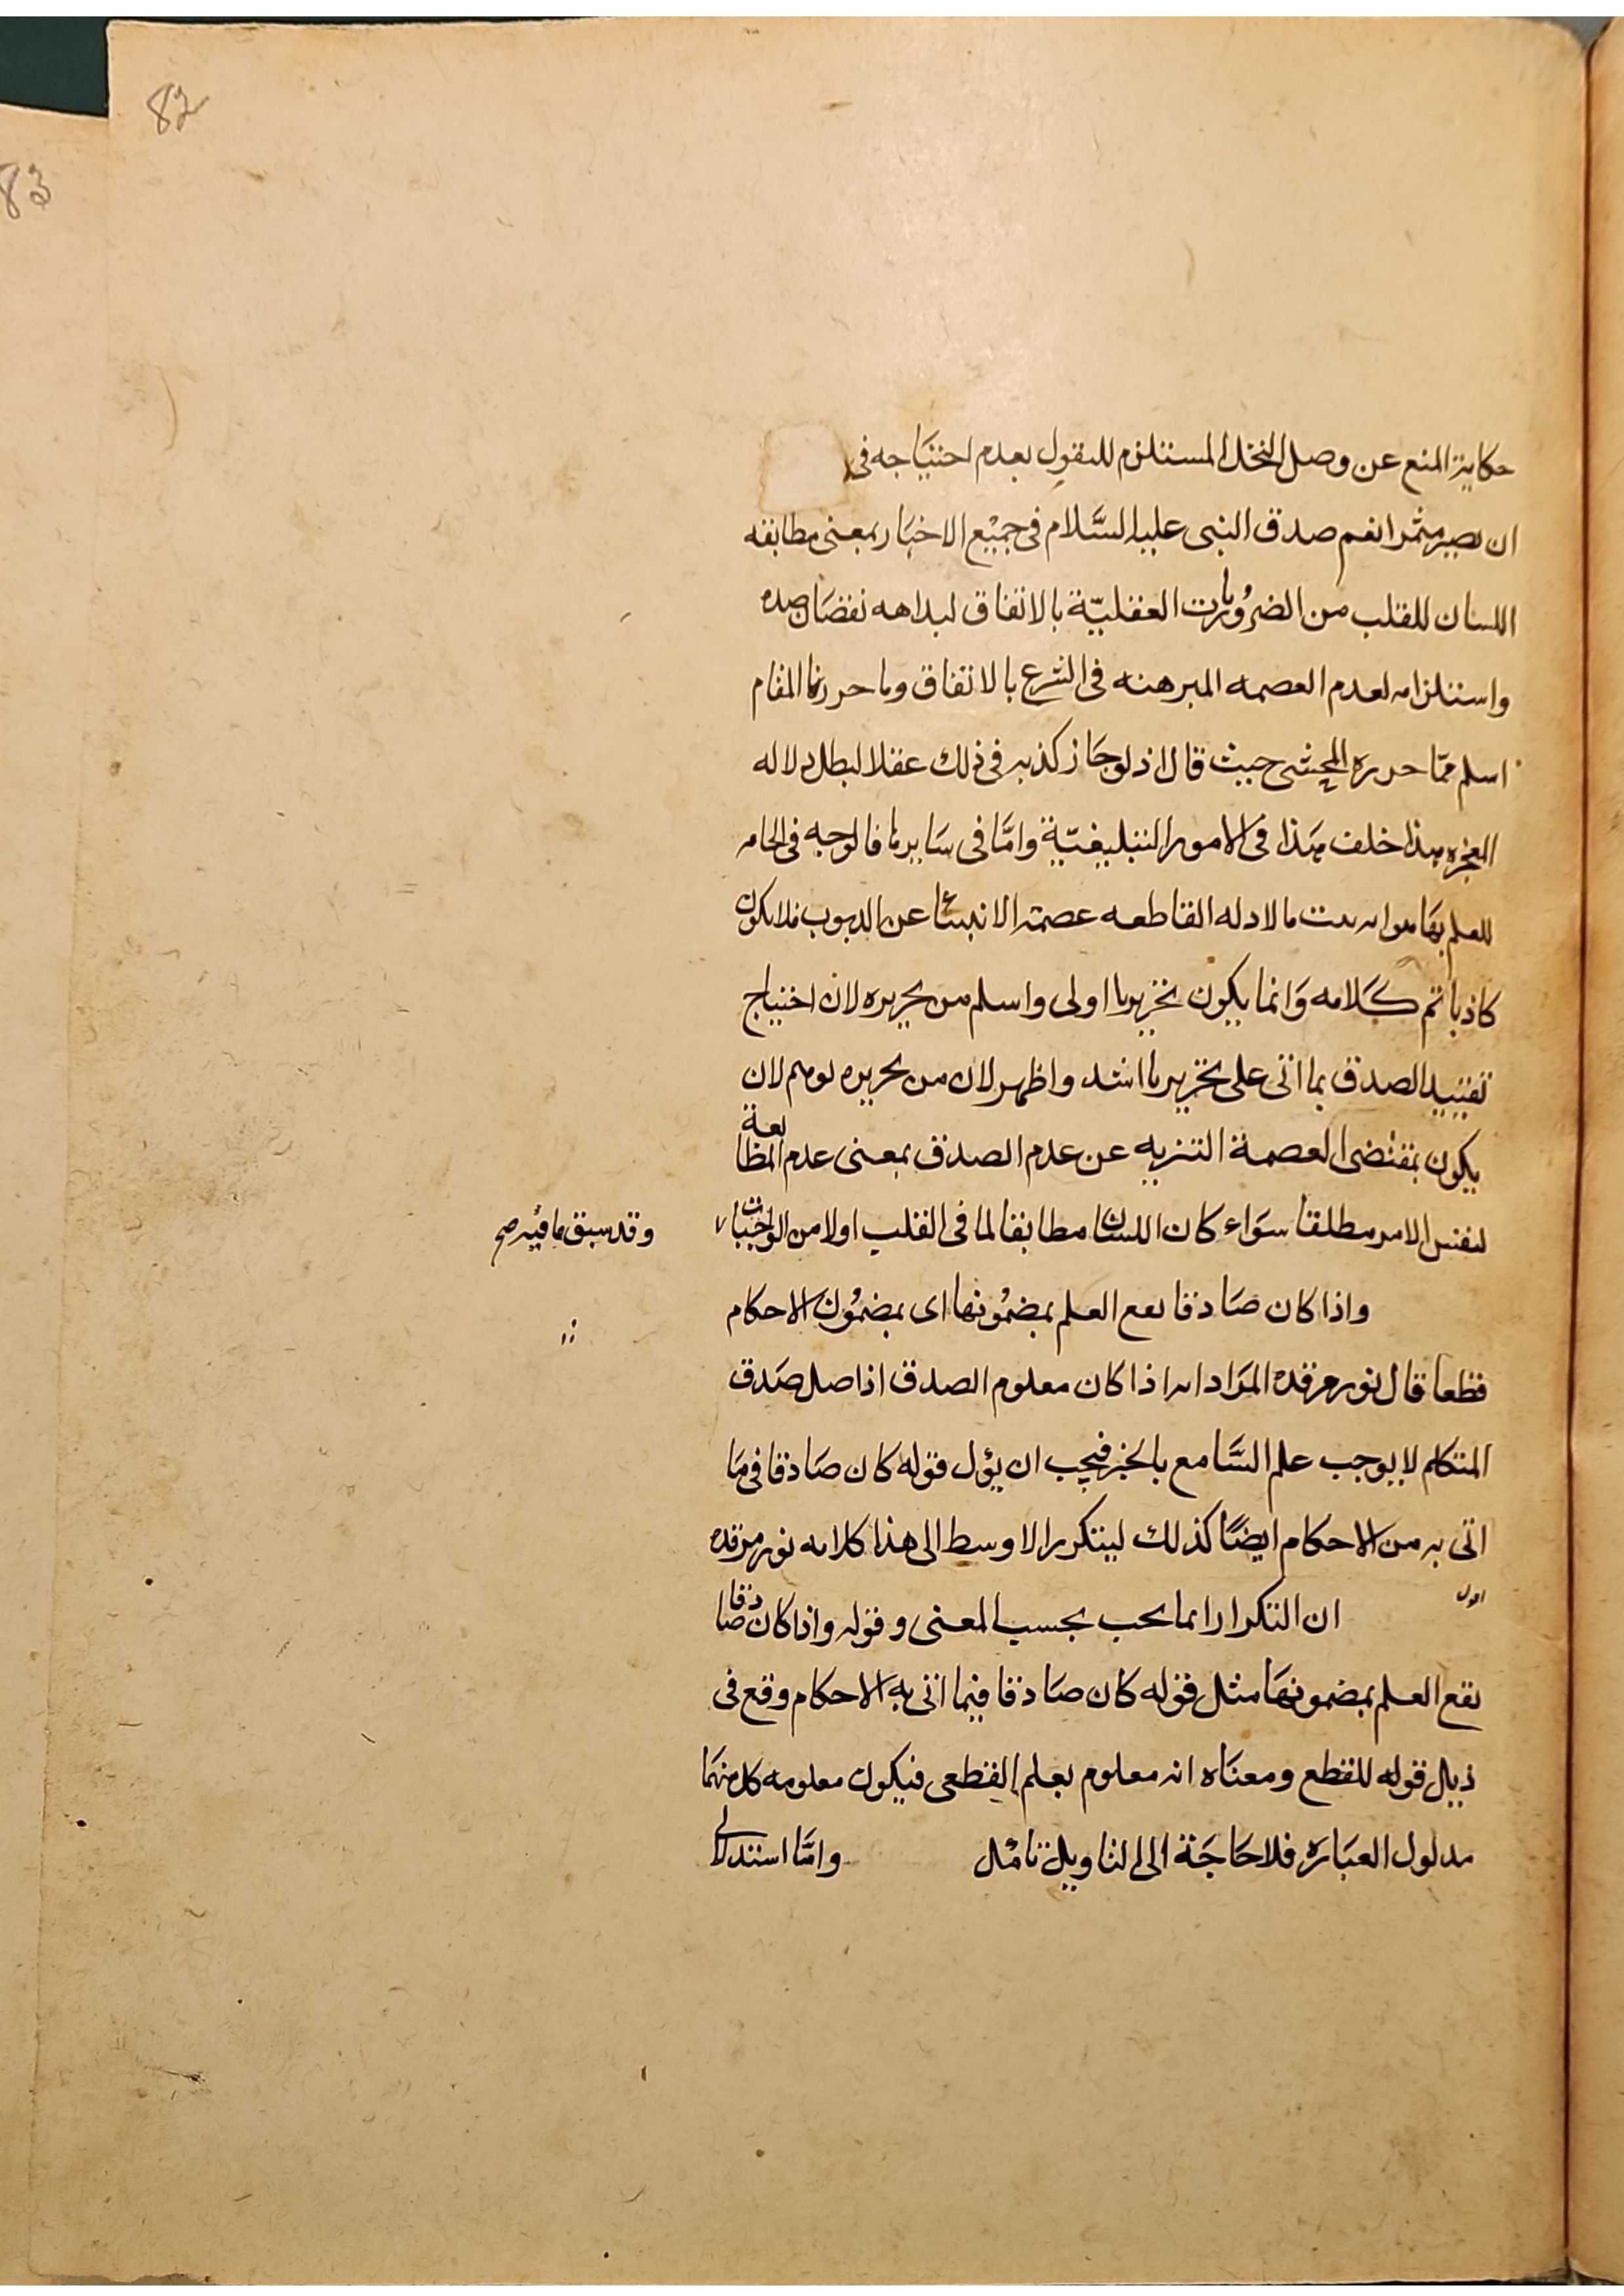 82
83
حكاية المنع عن وصل النخل المستلزم للقول بعدم احتياجه فى
ان يصير مثمرا نعم صدق النبى عليه السَّلام فى جميع الاخبَار بمعنى مطابقه
اللسان للقلب من الضرُوريات العقليّة بالاتفاق لبداهه نقصَان ضده
واستلزامه لعدم العصمه المبرهنه فى الشرع بالاتفاق وما حررنا المقام
اسلم ممّا حرره المحشى حيث قال اذ لو جَاز كذبه فى ذلك عقلا لبطل دلاله
المعجزه هذا خلف هَذا فى الامور التبليغيّة وامَّا فى سَايرها فالوجه فى الحامه
للعلم بهَا هو انه ثبت بالادله القاطعه عصمة الانبيَاء عن الذنوب فلا يكون
كاذبا تم كَلامه وَانما يكون تحريرنا اولى واسلم من تحريره لان احتياج
تقييد الصدق بما اتى على تحريرنا اشد واظهر لان من تحريره توهم لان
يكون بمقتضى العصمة التنزيه عن عدم الصدق بمعنى عدم المطابعة
لنفس الامر مطلقا سوَاء كان اللسان مطابقا لما فى القلب اولا من الواجبات
وقد سبق ما فيه صح
واذا كان صَادقا يقع العلم بمضمُونها اى بمضمُون الاحكام
قطعا قال نور مرقده المرَاد انه اذا كان معلوم الصدق اذ اصل صَدق
المتكلم لا يوجب علم السَّامع بالخبر فيجب ان يؤل قوله كان صَادقا فى مَا
اتى به من الاحكام ايضًا كذلك ليتكرر الاوسط الى هذا كلامه نور مرقده
اقول
ان التكرار انما يجب بحسب المعنى وقوله واذا كان صادقا
يقع العلم بمضمونهَا مثل قوله كان صَادقا فيما اتى به الاحكام وقع فى
ذيل قوله للقطع ومعنَاه انه معلوم بعلم القطعى فيكون معلومه كل منهمَا
مدلول العبَارَه فلا حَاجَة الى التاويل تامْل وامَّا استدلالى